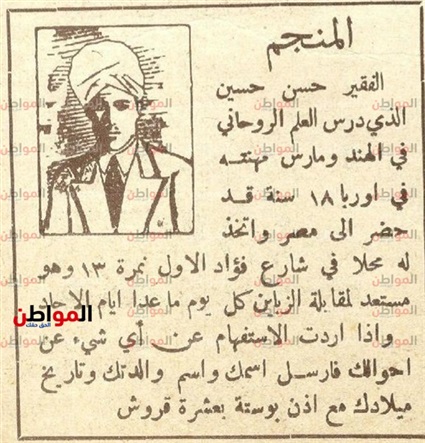 المنجم
الفقير حسن حسين
الذي درس العلم الروحاني
في الهند ومارس مهنته
في اوربا ١٨ سنة قد
حضر الى مصر واتخذ
له محلا في شارع فؤاد الاول نمرة ١٣ وهو
مستعد لمقابلة الزباين كل يوم ما عدا ايام الاحد
واذا اردت الاستفهام عن أي شيء عن
احوالك فارسل اسمك واسم والدتك وتاريخ
ميلادك مع اذن بوستة بعشرة قروش
المواطن
الحق معك